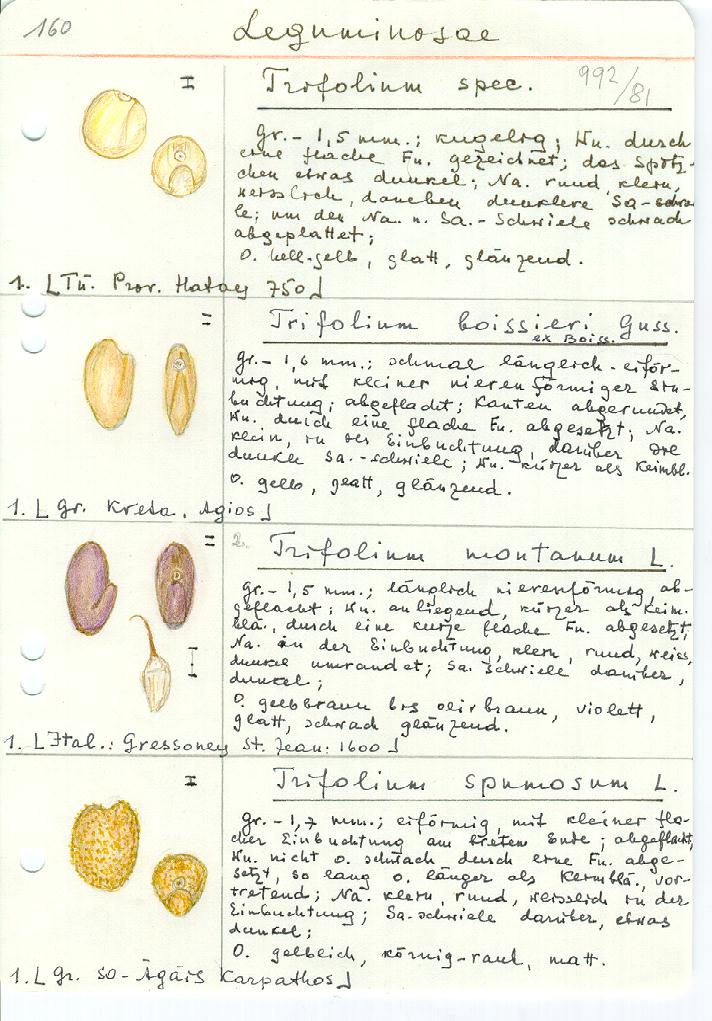 160
Leguminosae
Trifolium spec.
992/81
gr.- 1,5 mm.; kugelig; Wu. durch
eine flache Fu. gezeichnet; das Spitz-
chen etwas dunkel; Na. rund, klein,
weisslich, daneben dunklere Sa-schwie-
le; um den Na. u. Sa.-Schwiele schwach
abgeplattet;
O. hell-gelb, glatt, glänzend.
1. [Tü. Prov. Hatay 750]
Trifolium boissieri Guss.
ex Boiss.
gr.- 1,6 mm.; schmal länglich-eiför-
mig, mit kleiner nierenförmiger Ein-
buchtung; abgeflacht; Kanten abgerundet,
Wu. durch eine flache Fu. abgesetzt; Na.
klein, in der Einbuchtung, darüber die
dunkle Sa.-schwiele; Wu. kürzer als Keimbl.
O. gelb, glatt, glänzend.
1. [Gr. Kreta, Agios]
2. Trifolium montanum L.
gr.- 1,5 mm.; länglich nierenförmig, ab-
geflacht; Wu. anliegend, kürzer als Keim-
blä., durch eine kurze flache Fu. abgesetzt;
Na. in der Einbuchtung, klein, rund, weiss,
dunkel umrandet; Sa. Schwiele darüber,
dunkel;
O. gelbbraun bis olivbraun, violett,
glatt, schwach glänzend.
1. [Ital.: Gressoney St. Jean: 1600]
Trifolium spumosum L.
gr.- 1,7 mm.; eiförmig, mit kleiner fla-
cher Einbuchtung am breiten Ende; abgeflacht,
Wu. nicht o. schwach durch eine Fu. abge-
setzt, so lang o. länger als Keimblä., vor-
tretend; Na. klein, rund, weisslich in der
Einbuchtung; Sa-schwiele darüber, etwas
dunkel;
O. gelblich, körnig-rauh, matt.
1. [Gr. SO-Ägäis Karpathos]